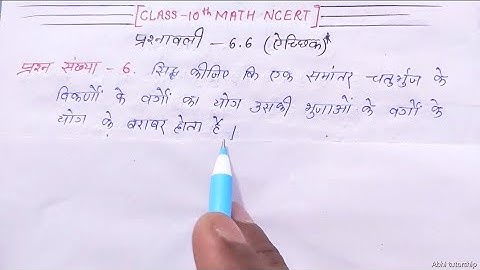 [CLASS-10th MATH NCERT]
प्रश्नावली - 6.6 (ऐच्छिक)*
प्रश्न संख्या - 6. सिद्ध कीजिए कि एक समांतर चतुर्भुज के
विकर्णों के वर्गों का योग उसकी भुजाओं के वर्गों के
योग के बराबर होता है।
Abhi tutorship